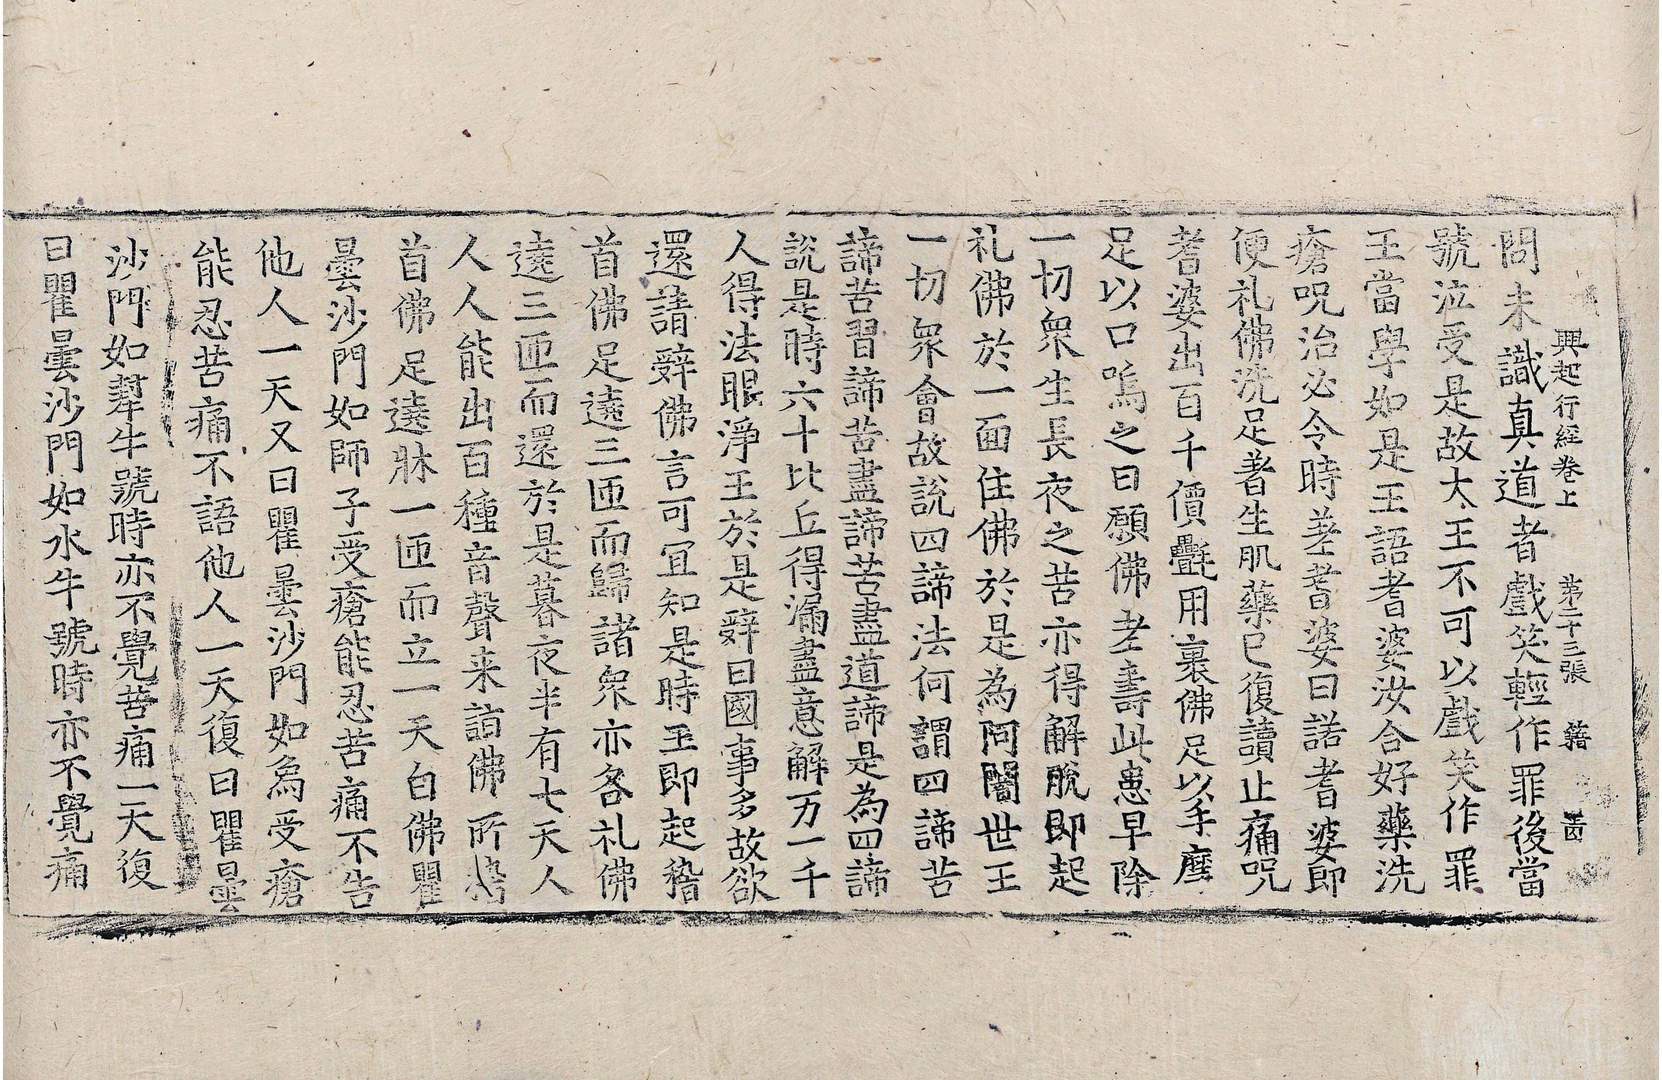 興起行經卷上 第二十三張 籍
問未識真道者戲笑輕作罪後當
號泣受是故大王不可以戲笑作罪
王當學如是王語耆婆汝合好藥洗
瘡呪治必令時差耆婆曰諾耆婆即
便礼佛洗足著生肌藥已復讀止痛呪
耆婆出百千價㲲用裹佛足以手摩
足以口嗚之曰願佛老壽此患早除
一切衆生長夜之苦亦得解脫即起
礼佛於一面住佛於是為阿闍世王
一切衆會故說四諦法何謂四諦苦
諦苦習諦苦盡諦苦盡道諦是為四諦
說是時六十比丘得漏盡意解万一千
人得法眼淨王於是辝曰國事多故欲
還請辝佛言可冝知是時王即起稽
首佛足遶三匝而歸諸衆亦各礼佛
遶三匝而還於是暮夜半有七天人
人人能出百種音聲来詣佛所稽
首佛足遶牀一匝而立一天白佛瞿
曇沙門如師子受瘡能忍苦痛不告
他人一天又曰瞿曇沙門如為受瘡
能忍苦痛不語他人一天復曰瞿曇
沙門如犛牛號時亦不覺苦痛一天復
曰瞿曇沙門如水牛號時亦不覺痛